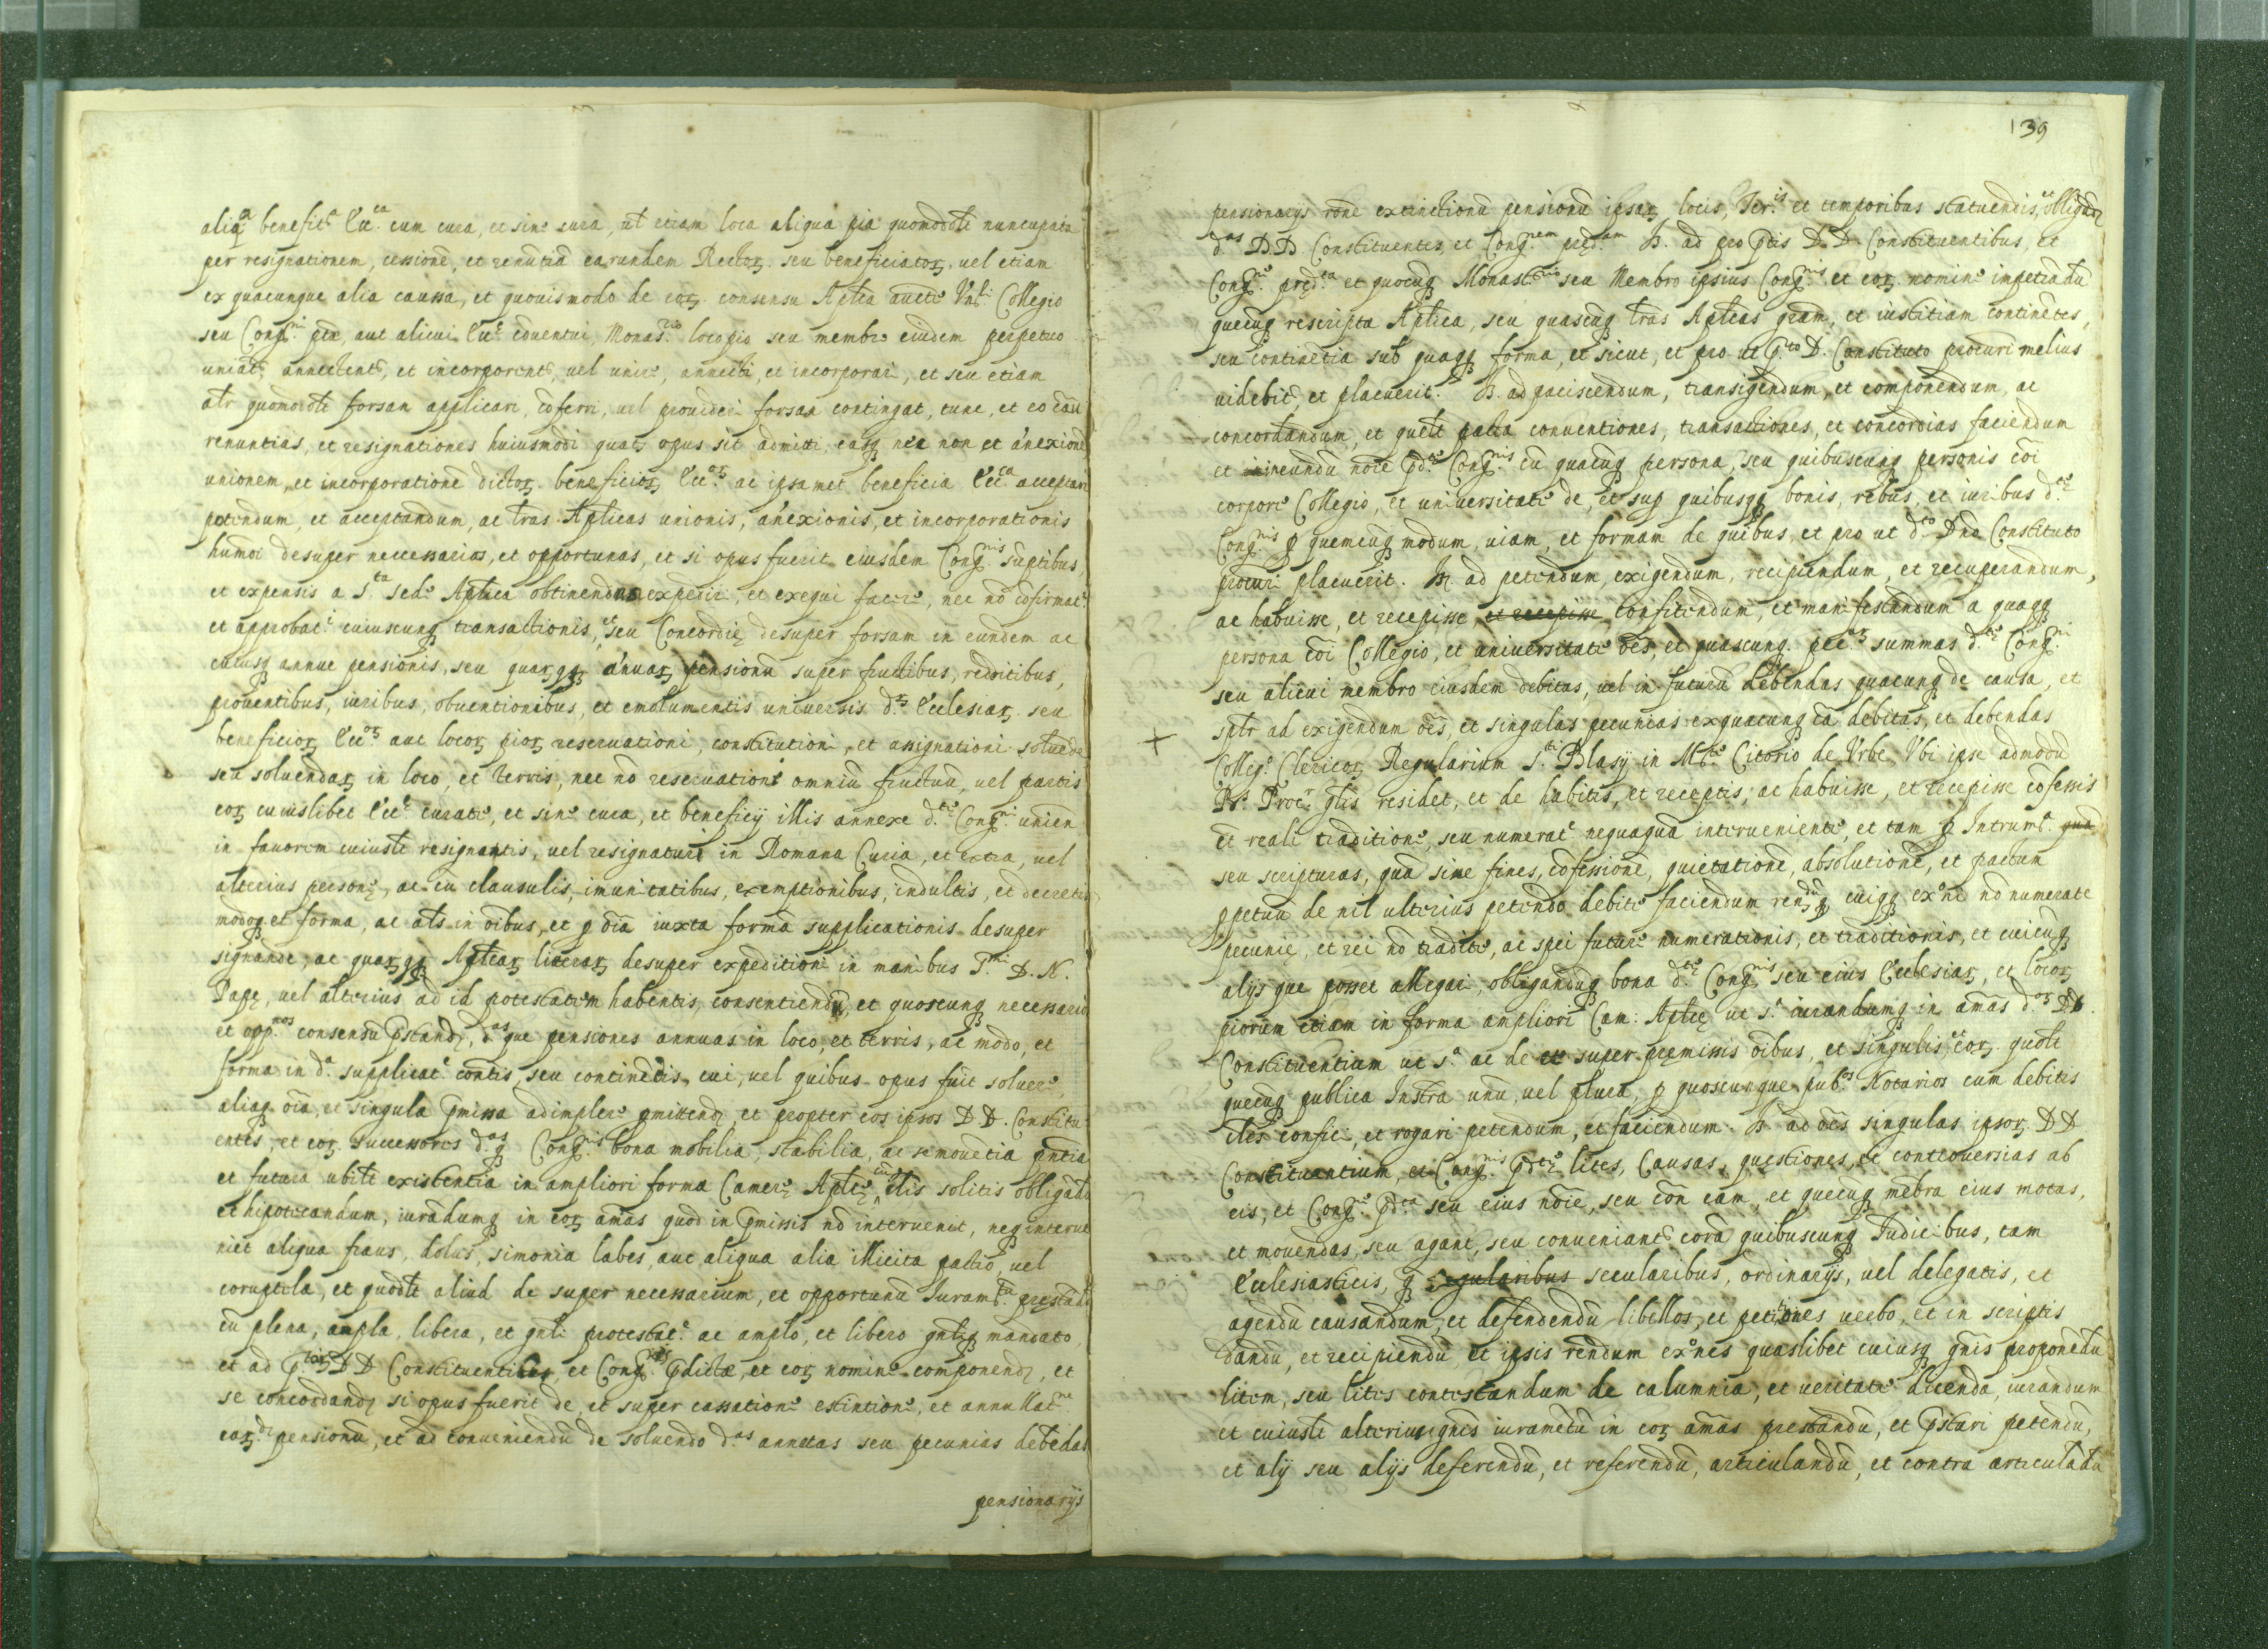 aliq.a benefic.a Ecc.ca cum cura, et sine cura, ut etiam loca aliqua pia quomodolt nuncupata
per resignationem, cessionē, et renūtiā earundem Rectoꝝ seu beneficiatoꝝ, uel etiam
ex quacunque alia caussa, et quouis modo de eoꝝ consensu Aptca auctte Collegio
seu Cong.ni pte, aut alicui Ecc.e cōuentui, Monas.rio loco pio seu membro eiusdem perpetuo
uniāt, annectent, et incorporent, uel unire, annecti, et incorporari, et seu etiam
altr quomodolt forsan applicari, cōferri, uel prouideri forsan contingat, tunc, et eo cāu
renuntias, et resignationes huiusmodi quat. opus sit admitti easq nec non et ānexionē
unionem, et incorporationē dictoꝝ beneficioꝝ Ecc.oꝝ ac ipsamet beneficia Ecc.ca acceptari
petendum, et acceptandum, ac lras Apticas unionis, ānexionis, et incorporationis
humoi desuper neccessarias, et opportunas, et si opus fuerit eiusdem Cong.nis sūptibus,
et expensis a S.ta Sede Aptica obtinendas expediri, et exequi facere, nec nō cōfirmat.
et approbat.e cuiuscunq transactionis, et seu Concordie desuper forsam in eundem ac
cuiusq annue pensionis, seu quaꝝqq ānuaꝝ pensionū super fructibus, redditibus,
prouentibus, iuribus, obuentionibus, et emolumentis uniuersis d.aꝝ Ecclesiaꝝ seu
beneficioꝝ Ecc.oꝝ aut locoꝝ pioꝝ reseruationi, constitutioni, et assignationi soluede
seu soluendaꝝ in loco, et terris, nec nō reseruatione omniū fructuū, uel partis
eoꝝ cuiuslibet Ecc.e curate, et sine cura, et beneficij illis annexe d.te Cong.ni unien
in fauorem cuiuslt resignantis, uel resignaturi in Romana Curia, et extra, uel
alterius persone, ac cū clausulis, imunitatibus, exemptionibus, indultis, et decretis
modoq et forma, ac als in oībus, et p oīa iuxta formā supplicationis desuper
signande, ac quaꝝqq Apticaꝝ literaꝝ desuper expeditioni in manibus S.mi D. N.
Pape, uel alterius ad id potestatem habentis consentiendū, et quoscunq necessarios
et opp.nos consensū pstand., d.as que pensiones annuas in loco, et terris, ac modo, et
forma in d.a supplicat.e contis, seu continēdis, cui, uel quibus opus fuit soluere,
aliaq oīa, et singula pmissa adimplere pmittend. et propter eos ipsos DD. Constitu
entes, et eoꝝ successores d.as q Cong.nis bona mobilia, stabilia, ac se mouētia pntia
et futura ubilt existentia in ampliori forma Camere Aptice, cū ctlis solitis obligādū
et hipotecandum, iurādumq in eoꝝ aīas quod in pmissis nō interuenit, neq interue
niet aliqua fraus, dolus, simonia labes, aut aliqua alia illicita pactio, uel
coruptela, et quodlt aliud de super necessarium, et opportunū Iuram.tū prestādū
cū plena, ampla, libera, et gnli protestate ac amplo, et libero gnliq mandato
et ad p.toꝝ DD Constituentiū, et Cong.nis pdictæ, et eoꝝ nomine componend, et
se concordand, si opus fuerit de, et super cassatione extintione, et annullat.ne
eaꝝd. pensionū, et ad conueniendū de soluendo d.as annatas seu pecunias debēdas
pensionarijs
139
pensionarijs rōne extinctionū pensionū ipsaꝝ, locis, Ter.is et temporibus statuendis, et obligand
d.as D.D Constituentes, et Cong.nem pred.am It. ad pro ptis D.D. Constituentibus, et
Cong.ne pred.ta et quocūq Monast.rio seu Membro ipsius Cong.nis et eoꝝ nomine impetrādū
quecūq rescripta Aptica, seu quascūq lras Apticas grām, et iustitiam continētes,
seu continētia sub quaqq forma, et sicut, et pro ut p.to D. Constituto procuri melius
uidebit, et placuerit. It. ad paciscendum, transigendum, et componendum, ac
concordandum, et quelt pacta conuentiones, transactiones, et concordias faciendum
et ineundū noīe pd.te Cong.nis cū quacūq persona, seu quibuscunq personis cōi
corpore Collegio, et uniuersitate de, et sup quibusqq bonis, rebus, et iuribus d.te
Cong.nis p quemcūq modum, uiam, et formam de quibus, et pro ut d.to Dno Constituto
procuri placuerit. It. ad petendum, exigendum, recipiendum, et recuperandum,
ac habuisse, et recepisse, et recepisse confitendum, et manifestandum a quaqq
persona cōi Collegio, et uniuersitate oēs, et quascunq pec.aꝝ summas d.te Cong.ni
seu alicui membro eiusdem debitas, uel in futurū debendas quacunq de causa, et
sptr ad exigendum oēs, et singulas pecunias ex quacunq cā debitas, et debendas
Colleg.o Clericoꝝ Regularium S.ti Blasij in M.te Citorio de Urbe Ubi ipse admodū
R.s Procr. glis residet, et de habitis, et receptis, ac habuisse, et recepisse cōfessis
et reali traditione, seu numerat.e nequaquā interueniente, et tam p Intrum.t quā
seu scripturas, quā sine fines, cōfessionē, quietationē, absolutionē, et pactum
ppetuū de nil ulterius petendo debite faciendum ren.dūq cuiqq ex.ne nō numerate
pecunie, et rei nō tradite, ac spei future numerationis, et traditionis, et cuicūq
alijs que posset allegari obligandūq bona d.te Cong.nis seu eius Ecclesiaꝝ, et locoꝝ
piorum etiam in forma ampliori Cam: Aptce ut s.a iurandumq in aīas d.oꝝ DD.
Constituentium ut s.a ac de et super premissis oībus, et singulis, et eoꝝ quolt
quecūq publica Instra unū, uel plura, p quoscunque pub.os Notarios cum debitis
ctlis confici, et rogari petendum, et faciendum. It. ad oēs singulas ipsoꝝ DD
Constituentium, et Cong.nis pd.te lites, Causas, questiones, et controuersias ab
eis, et Cong.ne pd.ta seu eius noīe, seu con eam, et quecūq mēbra eius motas,
et mouendas, seu agant, seu conueniant. corā quibuscunq Iudicibus, tam
Ecclesiasticis, q regularibus secularibus, ordinarijs, uel delegatis, et
agendū causandum, et defendendū libellos, et petitiones uerbo, et in scriptis
dandū, et recipiendū et ipsis rendum ex.nes quaslibet cuiusq gnis proponēdū
litem, seu lites contestandum de calumnia, et ueritate dicenda, iurandum
et cuiuslt alterius gnis iuramētū in eoꝝ aīas prestandū, et pstari petendū,
et alij seu alijs deferendū, et referendū, articulandū, et contra articulādū